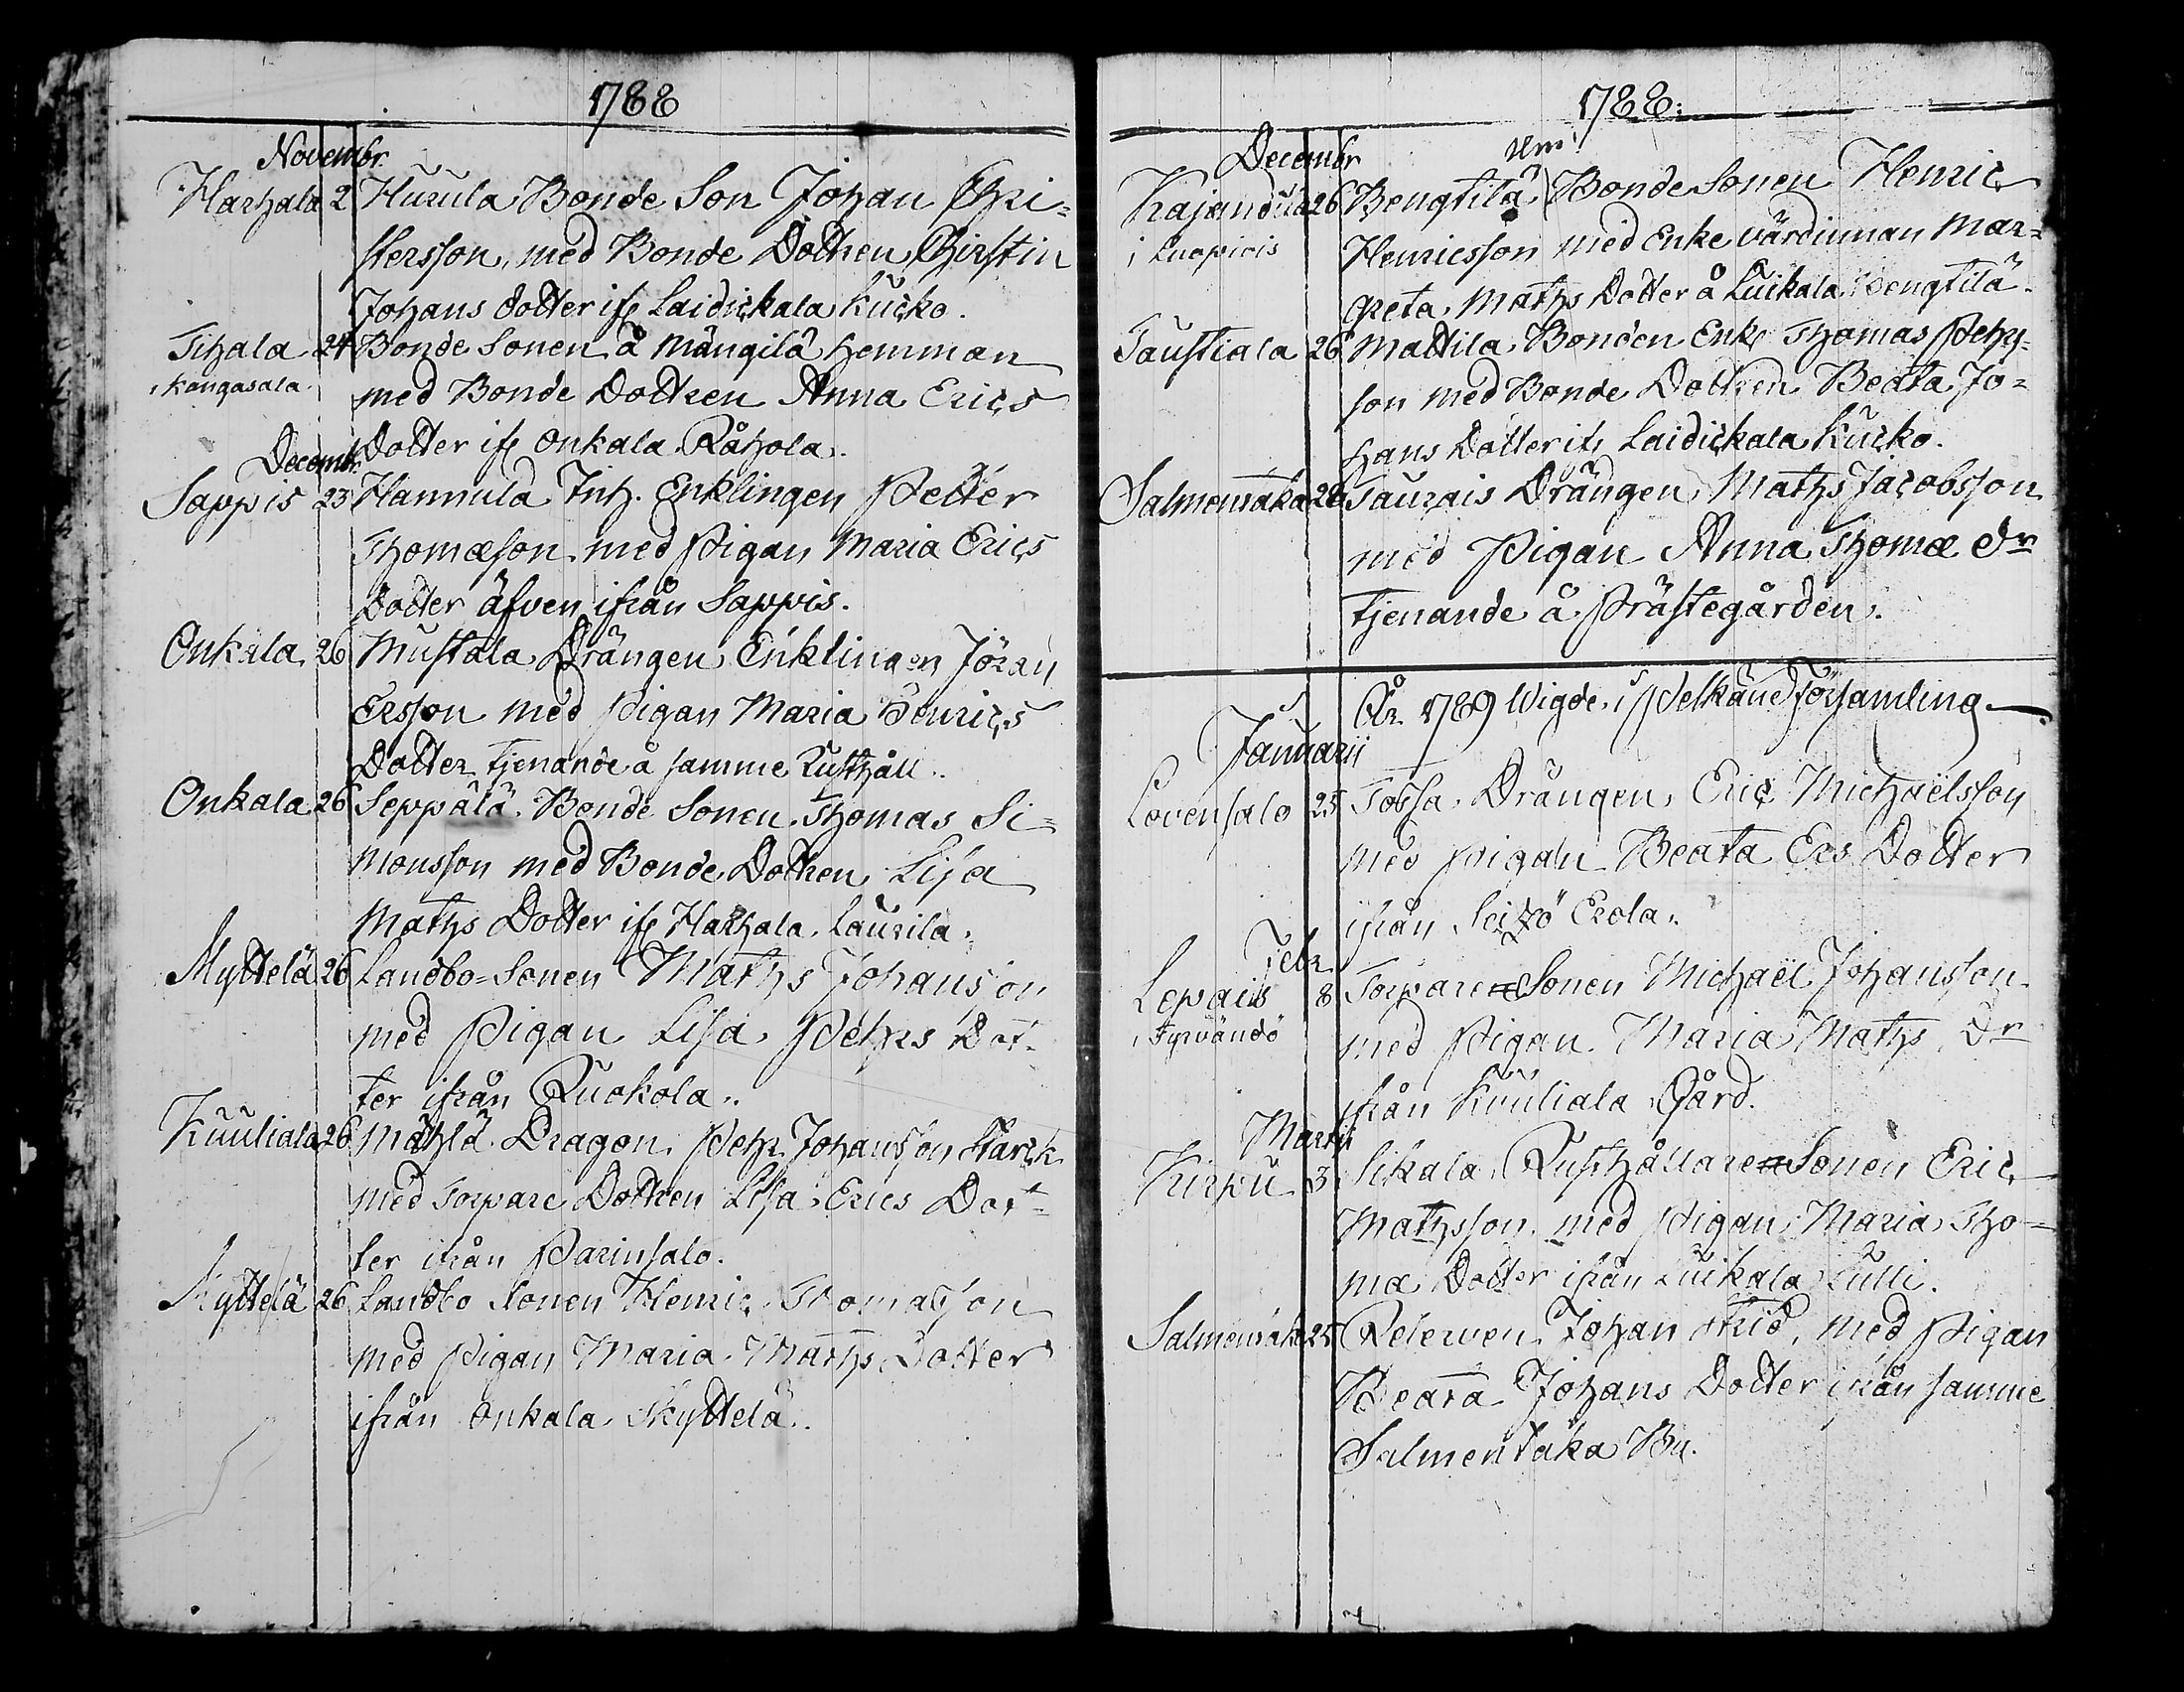 1788
Novembr
Harhala 2 Hurula Bonde Son Johan Chri-
stersson, med Bonde Dottren Chirstin
Johans dotter ifr Laidickala Kucko.
Tihala 24 Bonde Sonen å Mängilä hemman
i Kangasala med Bonde Dottren Anna Erics
Dotter ifr Onkala Råhola.
Decembr
Sappis 23 Hannula Inh. Enklingen Petter
Thomæson med Pigan Maria Erics
Dotter äfven ifrån Sappis.
Onkala 26 Mustala Drängen Enklingen Jöran
Ersson med Pigan Maria Henrics
Dotter tjenande å samme Rusthåll.
Onkala 26 Seppälä Bonde Sonen Thomas Si-
monsson med Bonde Dottren Lisa
Maths Dotter ifr Harhala Laurila.
Myttelä 26 Landbo-Sonen Maths Johansson
med Pigan Lisa Pehrs Dot-
ter ifrån Ruokola.
Kuuliala 26 Mählä Dragon Pehr Johansson Starck
med Torpare Dottren Lisa Erics Dot-
ter ifrån Parinsalo.
Myttelä 26 Landbo Sonen Henric Thomasson
med Pigan Maria Maths Dotter
ifrån Onkala Skyttelä.
1788:
Decembr
Kajandila 26 Bengtilä Bonde Sonen Henric
i Luopiois Henricsson med Enke värdinnan Mar-
greta Maths Dotter å Luikala Bengtilä.
Taustiala 26 Mattila Bonden Enkl Thomas Pehr-
son med Bonde Dottren Beata Jo-
hans Dotter ifr Laidickala Kucko.
Salmentaka 28 Taurais Drängen Maths Jacobsson
med Pigan Anna Thomæ Dr
tjenande å Prästegården.
År 1789 Wigde i Pelkäne Församling.
Januarii
Lovensalo 25 Tossa Drängen Eric Michaëlsson
med Pigan Beata Ers Dotter
ifrån Erola.
Febr
Lepais 8 Torpare Sonen Michaël Johansson
i Tyrvändö med Pigan Maria Maths Dr
ifrån Kuuliala Gård.
Martii
Kirpu 3 Sikala Rusthållare Sonen Eric
Mathsson med Pigan Maria Tho-
mæ Dotter ifrån Luikala Lulli.
Salmentaka 25 Reserven Johan Strid, med Pigan
Beata Johans Dotter ifrån samme
Salmentaka By.